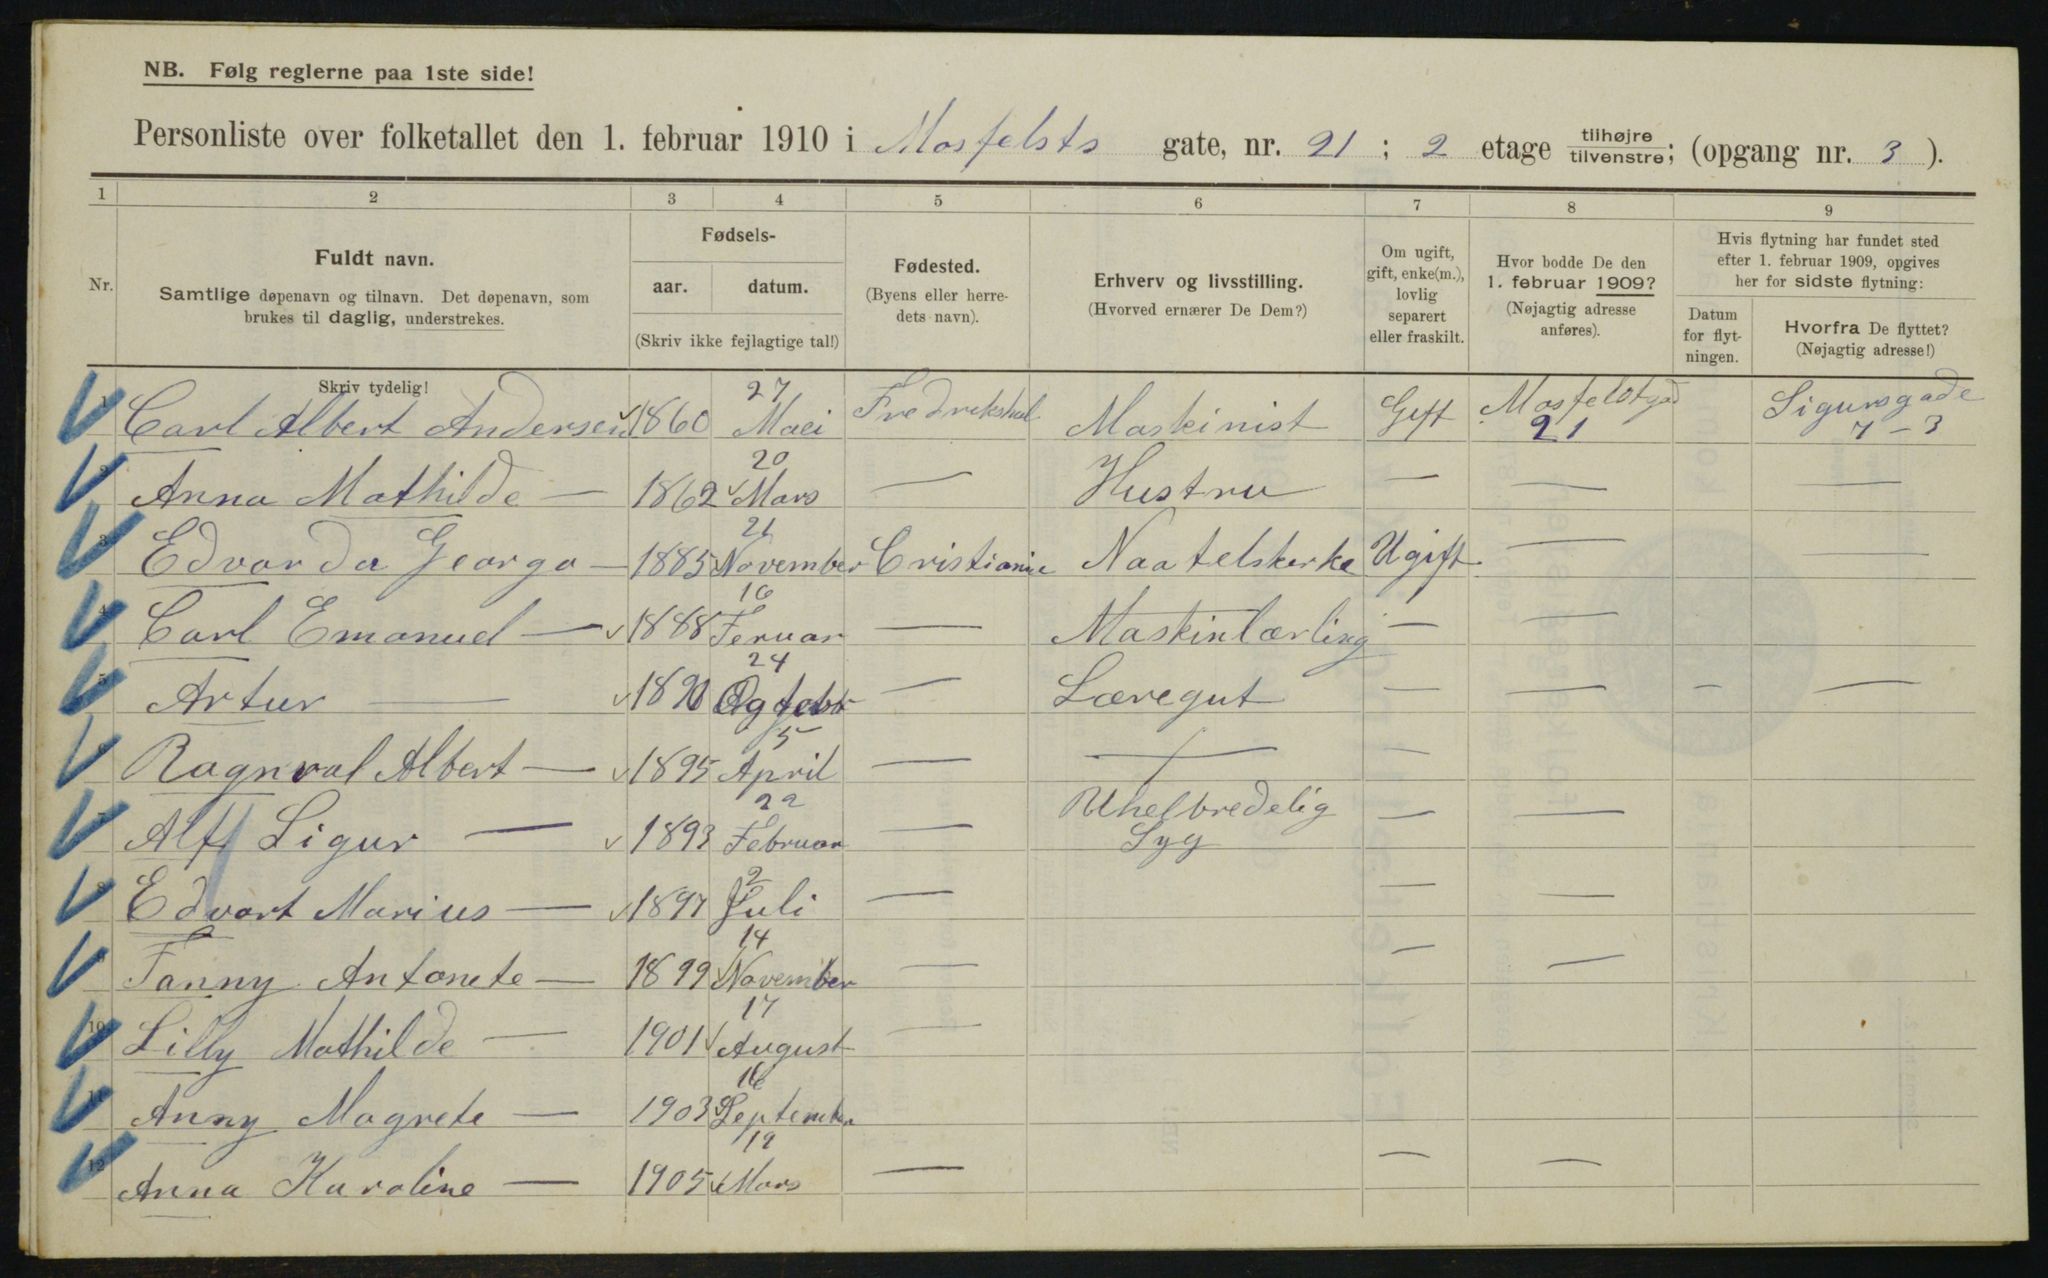 NB. Følg reglerne paa 1ste side!
Personliste over folketallet den 1. februar 1910 i Mosfelsts gate, nr. 21 ; 2 etage tilhøjre / tilvenstre; (opgang nr. 3 ).
1 2 3 4 5 6 7 8 9
Nr.
Fuldt navn.
Samtlige døpenavn og tilnavn. Det døpenavn, som
brukes til daglig, understrekes.
Skriv tydelig!
Fødsels-
aar. datum.
(Skriv ikke fejlagtige tal!)
Fødested.
(Byens eller herre-
dets navn).
Erhverv og livsstilling.
(Hvorved ernærer De Dem?)
Om ugift,
gift, enke(m.),
lovlig
separert
eller fraskilt.
Hvor bodde De den
1. februar 1909?
(Nøjagtig adresse
anføres).
Hvis flytning har fundet sted
efter 1. februar 1909, opgives
her for sidste flytning:
Datum
for flyt-
ningen.
Hvorfra De flyttet?
(Nøjagtig adresse!)
1 Carl Albert Andersen 1860 27 Maei Fredrikshal Maskinist Gift Mosfelstgad 21 Sigursgade 7 – 3
2 Anna Mathilde — 1862 20 Mars — Hustru — — —
3 Edvarda Georga — 1885 21 November Cristiania Naatelskerke Ugift —
4 Carl Emanuel — 1888 16 Feruar — Maskinlærling — —
5 Artur — 1890 24 Ogtober — Læregut — — – —
6 Ragnval Albert — 1895 5 April — — —
7 Alf Sigur — 1893 22 Februar — Uhelbredelig Syg — —
8 Edvart Marius — 1897 2 Juli — — —
9 Fanny Antonete — 1899 14 November — — —
10 Lilly Mathilde — 1901 17 August —
11 Anny Magrete — 1903 16 September
12 Anna Karoline — 1905 19 Mars — — —